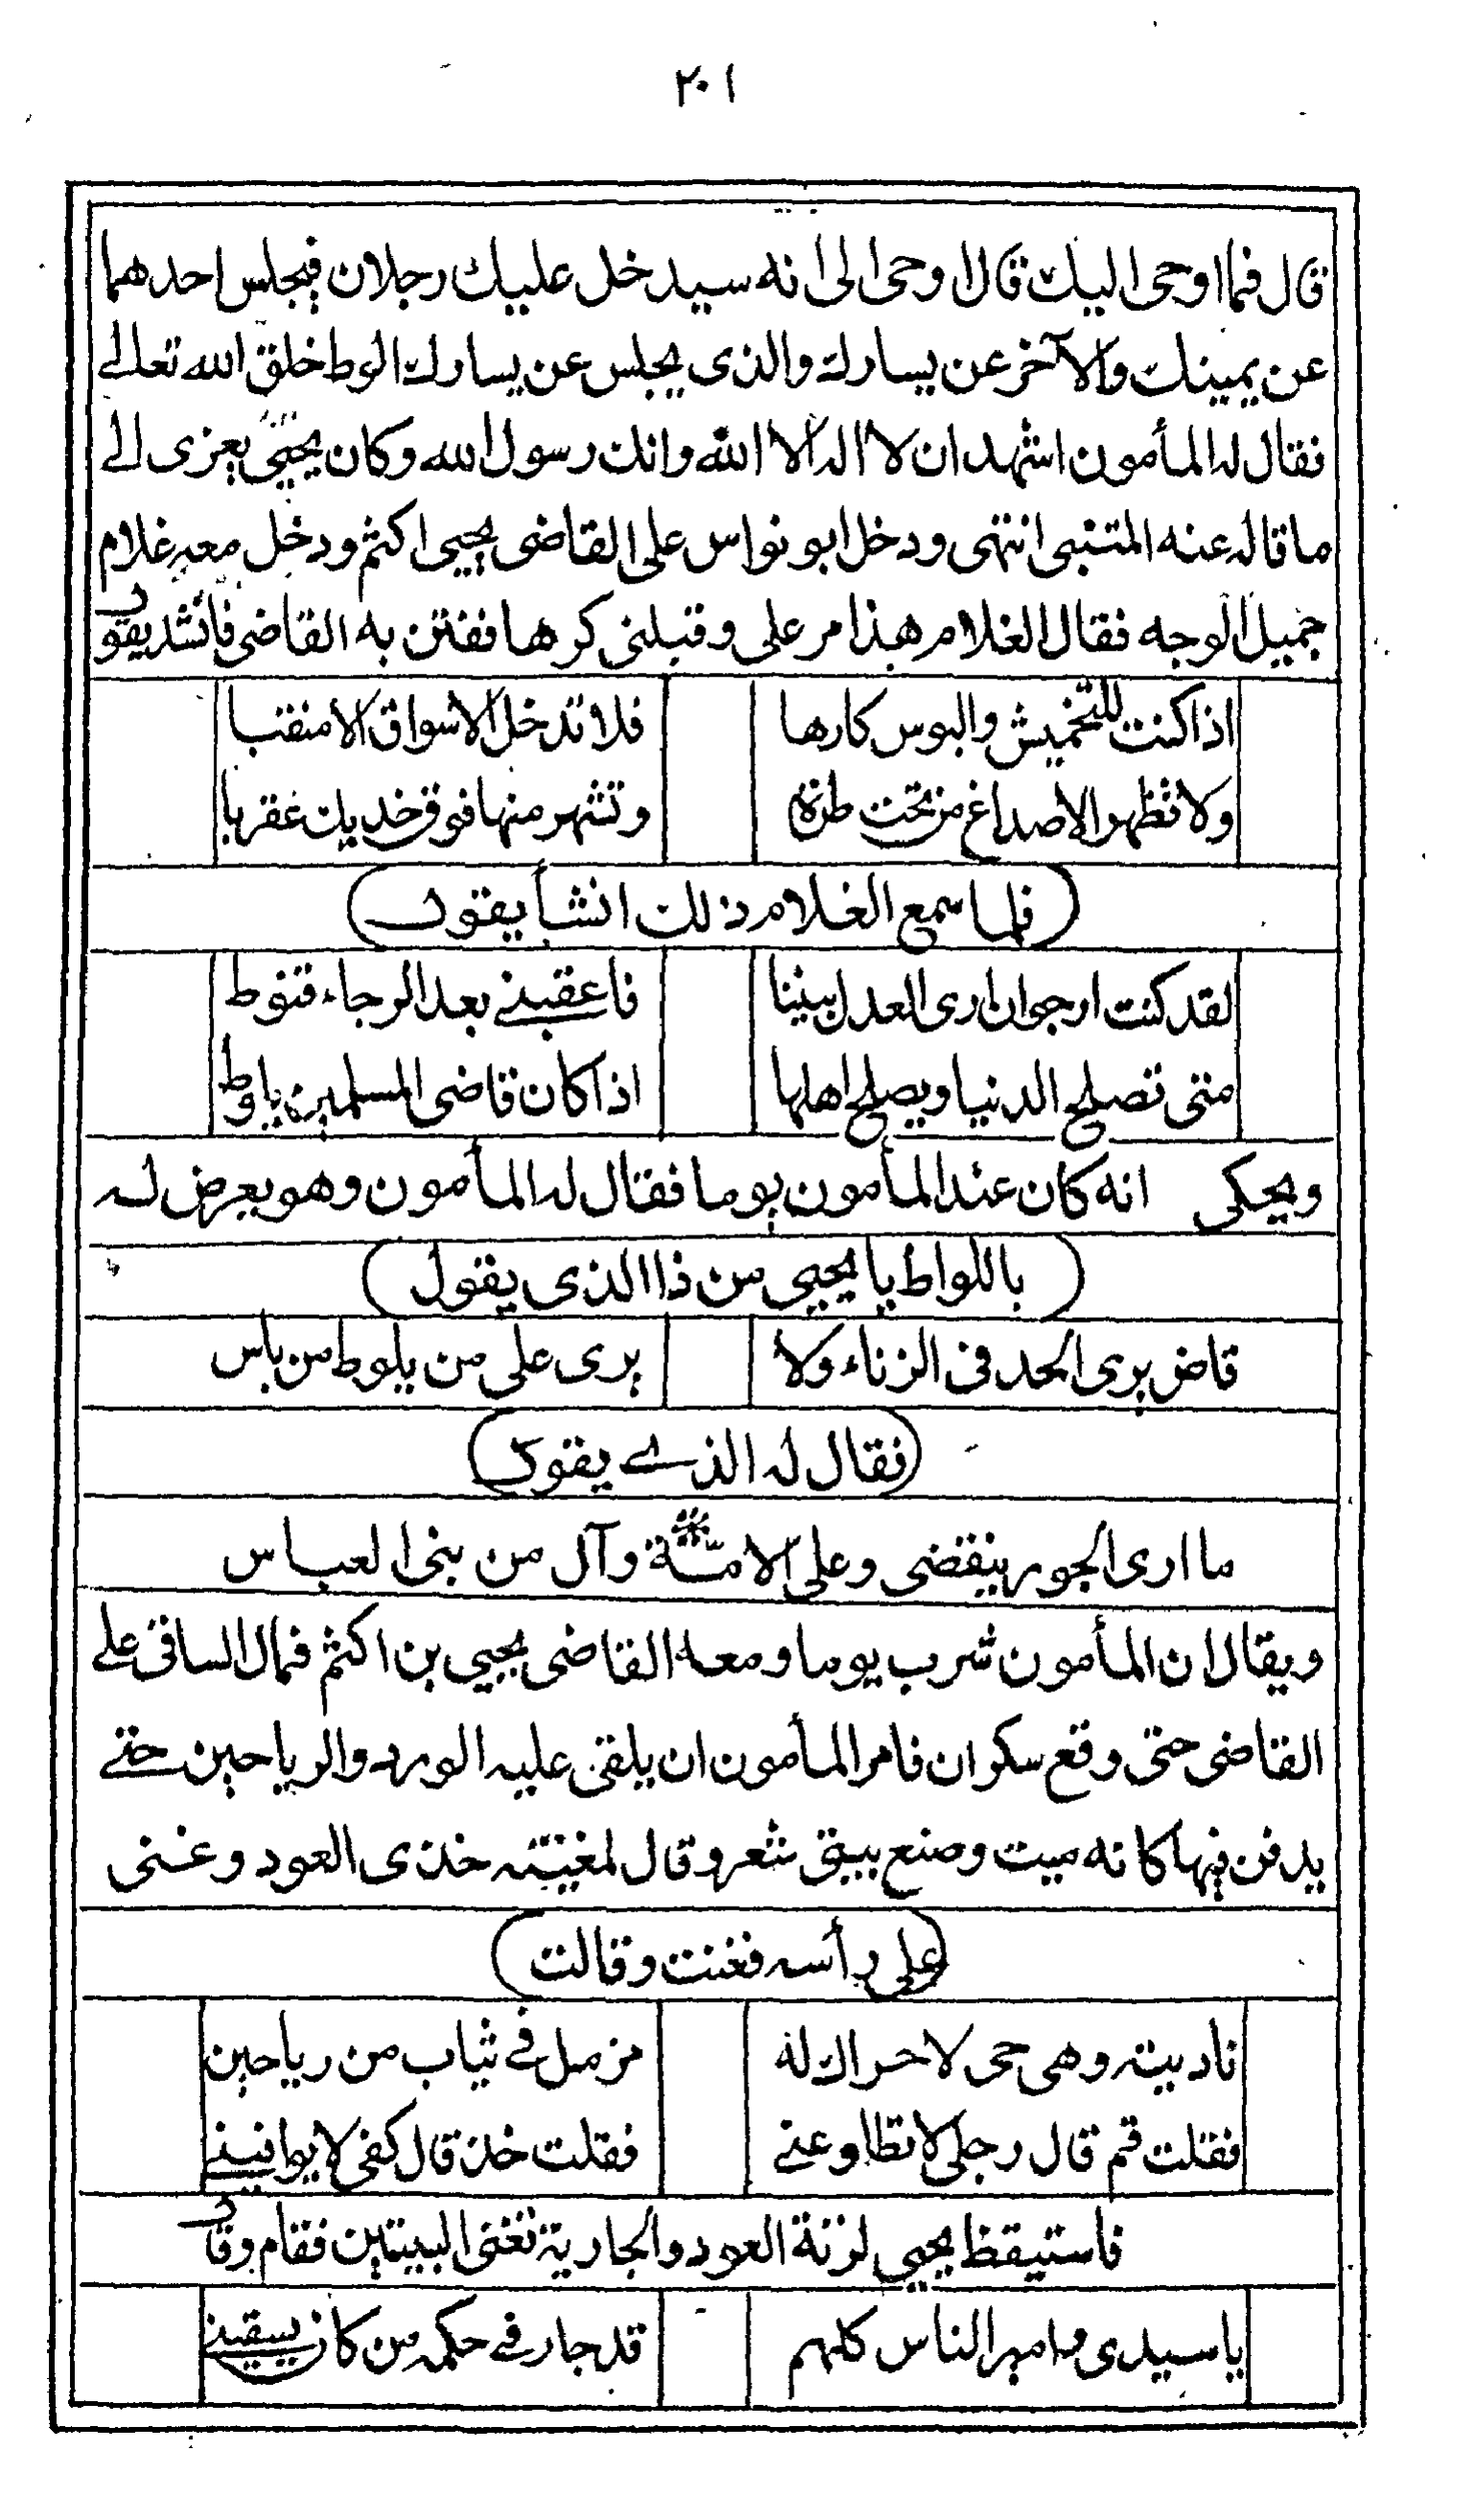 ٢٠١
قال فما اوحى اليك قال اوحى الى انه سيدخل عليك رجلان فيجلس احدهما
عن يمينك والآخر عن يسارك والذى يجلس عن يسارك الوط خلق الله تعالى
فقال له المأمون اشهد ان لا اله الا الله وانك رسول الله وكان يحيى يعزى الى
ما قاله عنه المتنبى انتهى ودخل ابو نواس على القاضى يحيى اكثم ودخل معه غلام
جميل الوجه فقال الغلام هذا مر على وقبلنى كرها ففتن به القاضى فانشد يقول
اذا كنت للتخميش والبوس كارها فلا تدخل الاسواق الا منقبا
ولا تظهر الاصداغ من تحت طرة وتشهر منها فوق خديك عقربا
(فلما سمع الغلام ذلك انشأ يقول)
لقد كنت ارجو ان ارى العدل بيننا فاعقبنى بعد الرجاء قنوط
متى تصلح الدنيا ويصلح اهلها اذا كان قاضى المسلمين يلوط
ويحكى انه كان عند المأمون يوما فقال له المأمون وهو يعرض له
(باللواط يا يحيى من ذا الذى يقول)
قاض يرى الحد فى الزناء ولا يرى على من يلوط من باس
(فقال له الذى يقول)
ما ارى الجور ينقضى وعلى الامة وآل من بنى العباس
ويقال ان المأمون شرب يوما ومعه القاضى يحيى بن اكثم فمال الساقى على
القاضى حتى وقع سكران فامر المأمون ان يلقى عليه الورد والرياحين حتى
يدفن فيها كانه ميت وصنع بيتى شعر وقال لمغنيته خذى العود وغنى
(على رأسه فغنت وقالت)
ناديته وهى حى لا حراك له مزمل فى ثياب من رياحين
فقلت قم قال رجلى لا تطاوعنى فقلت خذ قال كفى لا يوافينى
فاستيقظ يحيى لرنة العود والجارية تغنى البيتين فقام وقال
يا سيدى وامير الناس كلهم قد جار فى حكمه من كان يسقينى